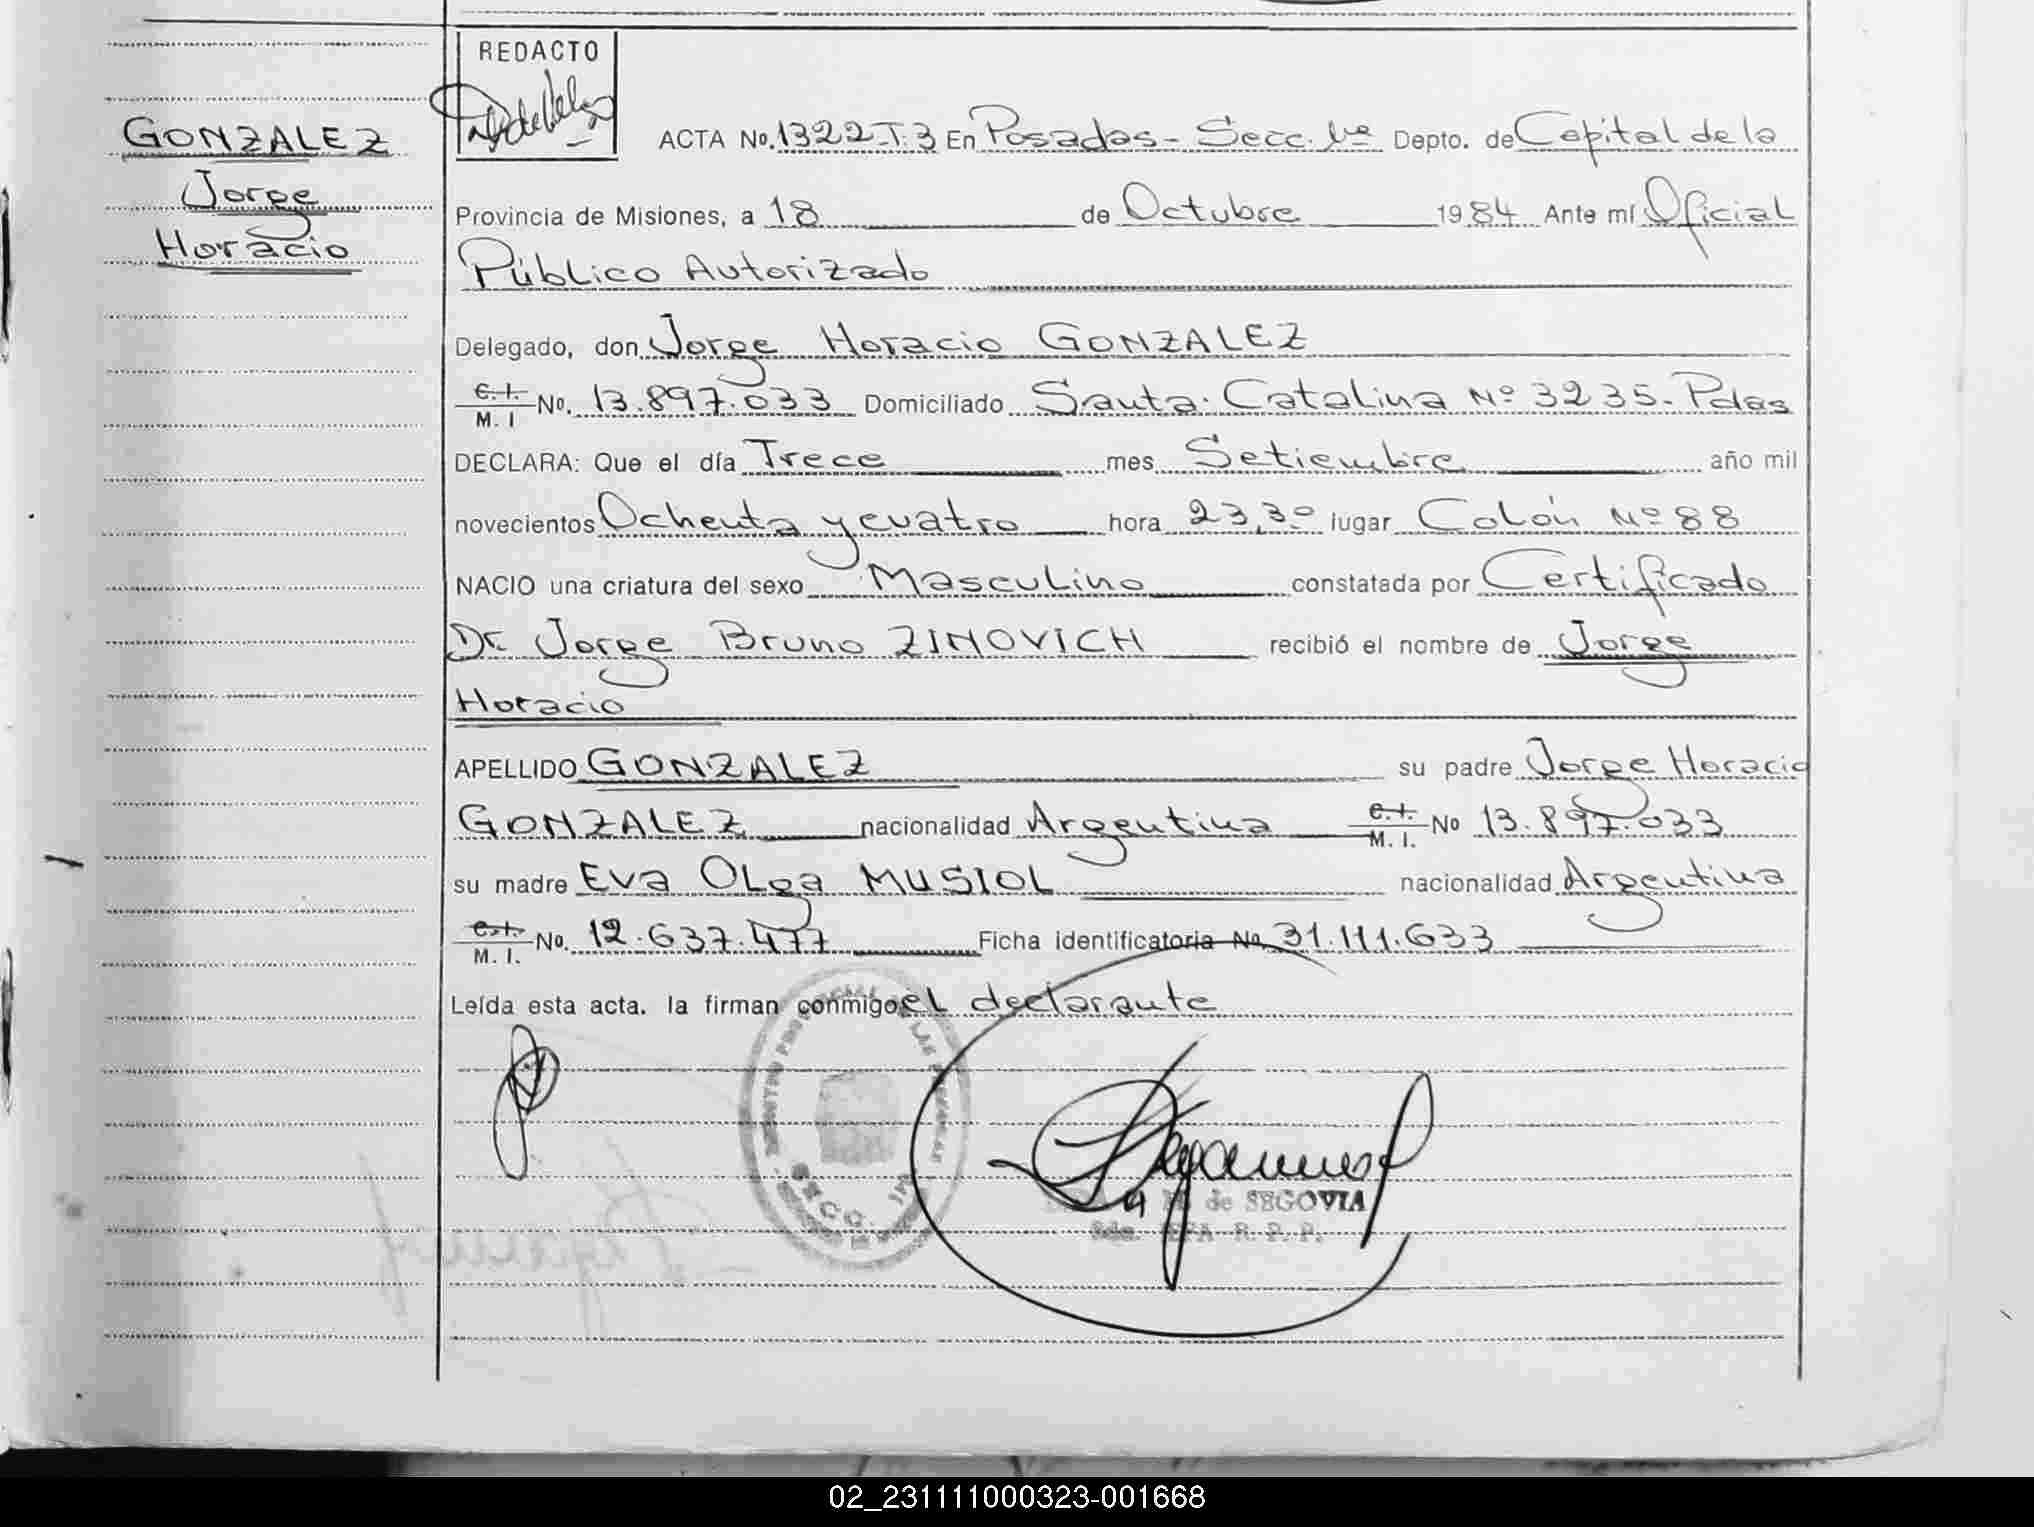 REDACTO
GONZALEZ
Jorge
Horacio
ACTA No. 1322-T.3 En Posadas - Secc. 1ra Depto. de Capital de la
Provincia de Misiones, a 18 de Octubre 1984 Ante mí Oficial
Público Autorizado
Delegado, don Jorge Horacio GONZALEZ
C.I. M.I No. 13.897.033 Domiciliado Santa Catalina Nº 3235 - Pdas
DECLARA: Que el día Trece mes Setiembre año mil
novecientos Ochenta y cuatro hora 23,30 lugar Colón Nº 88
NACIO una criatura del sexo Masculino constatada por Certificado
Dr. Jorge Bruno ZINOVICH recibió el nombre de Jorge
Horacio
APELLIDO GONZALEZ su padre Jorge Horacio
GONZALEZ nacionalidad Argentina C.I. M.I. No 13.897.033
su madre Eva Olga MUSIOL nacionalidad Argentina
C.I. M.I. No. 12.637.477 Ficha identificatoria No 31.111.633
Leída esta acta. la firman conmigo el declarante
de SEGOVIA
R. P. P.
SECC.
02_231111000323-001668